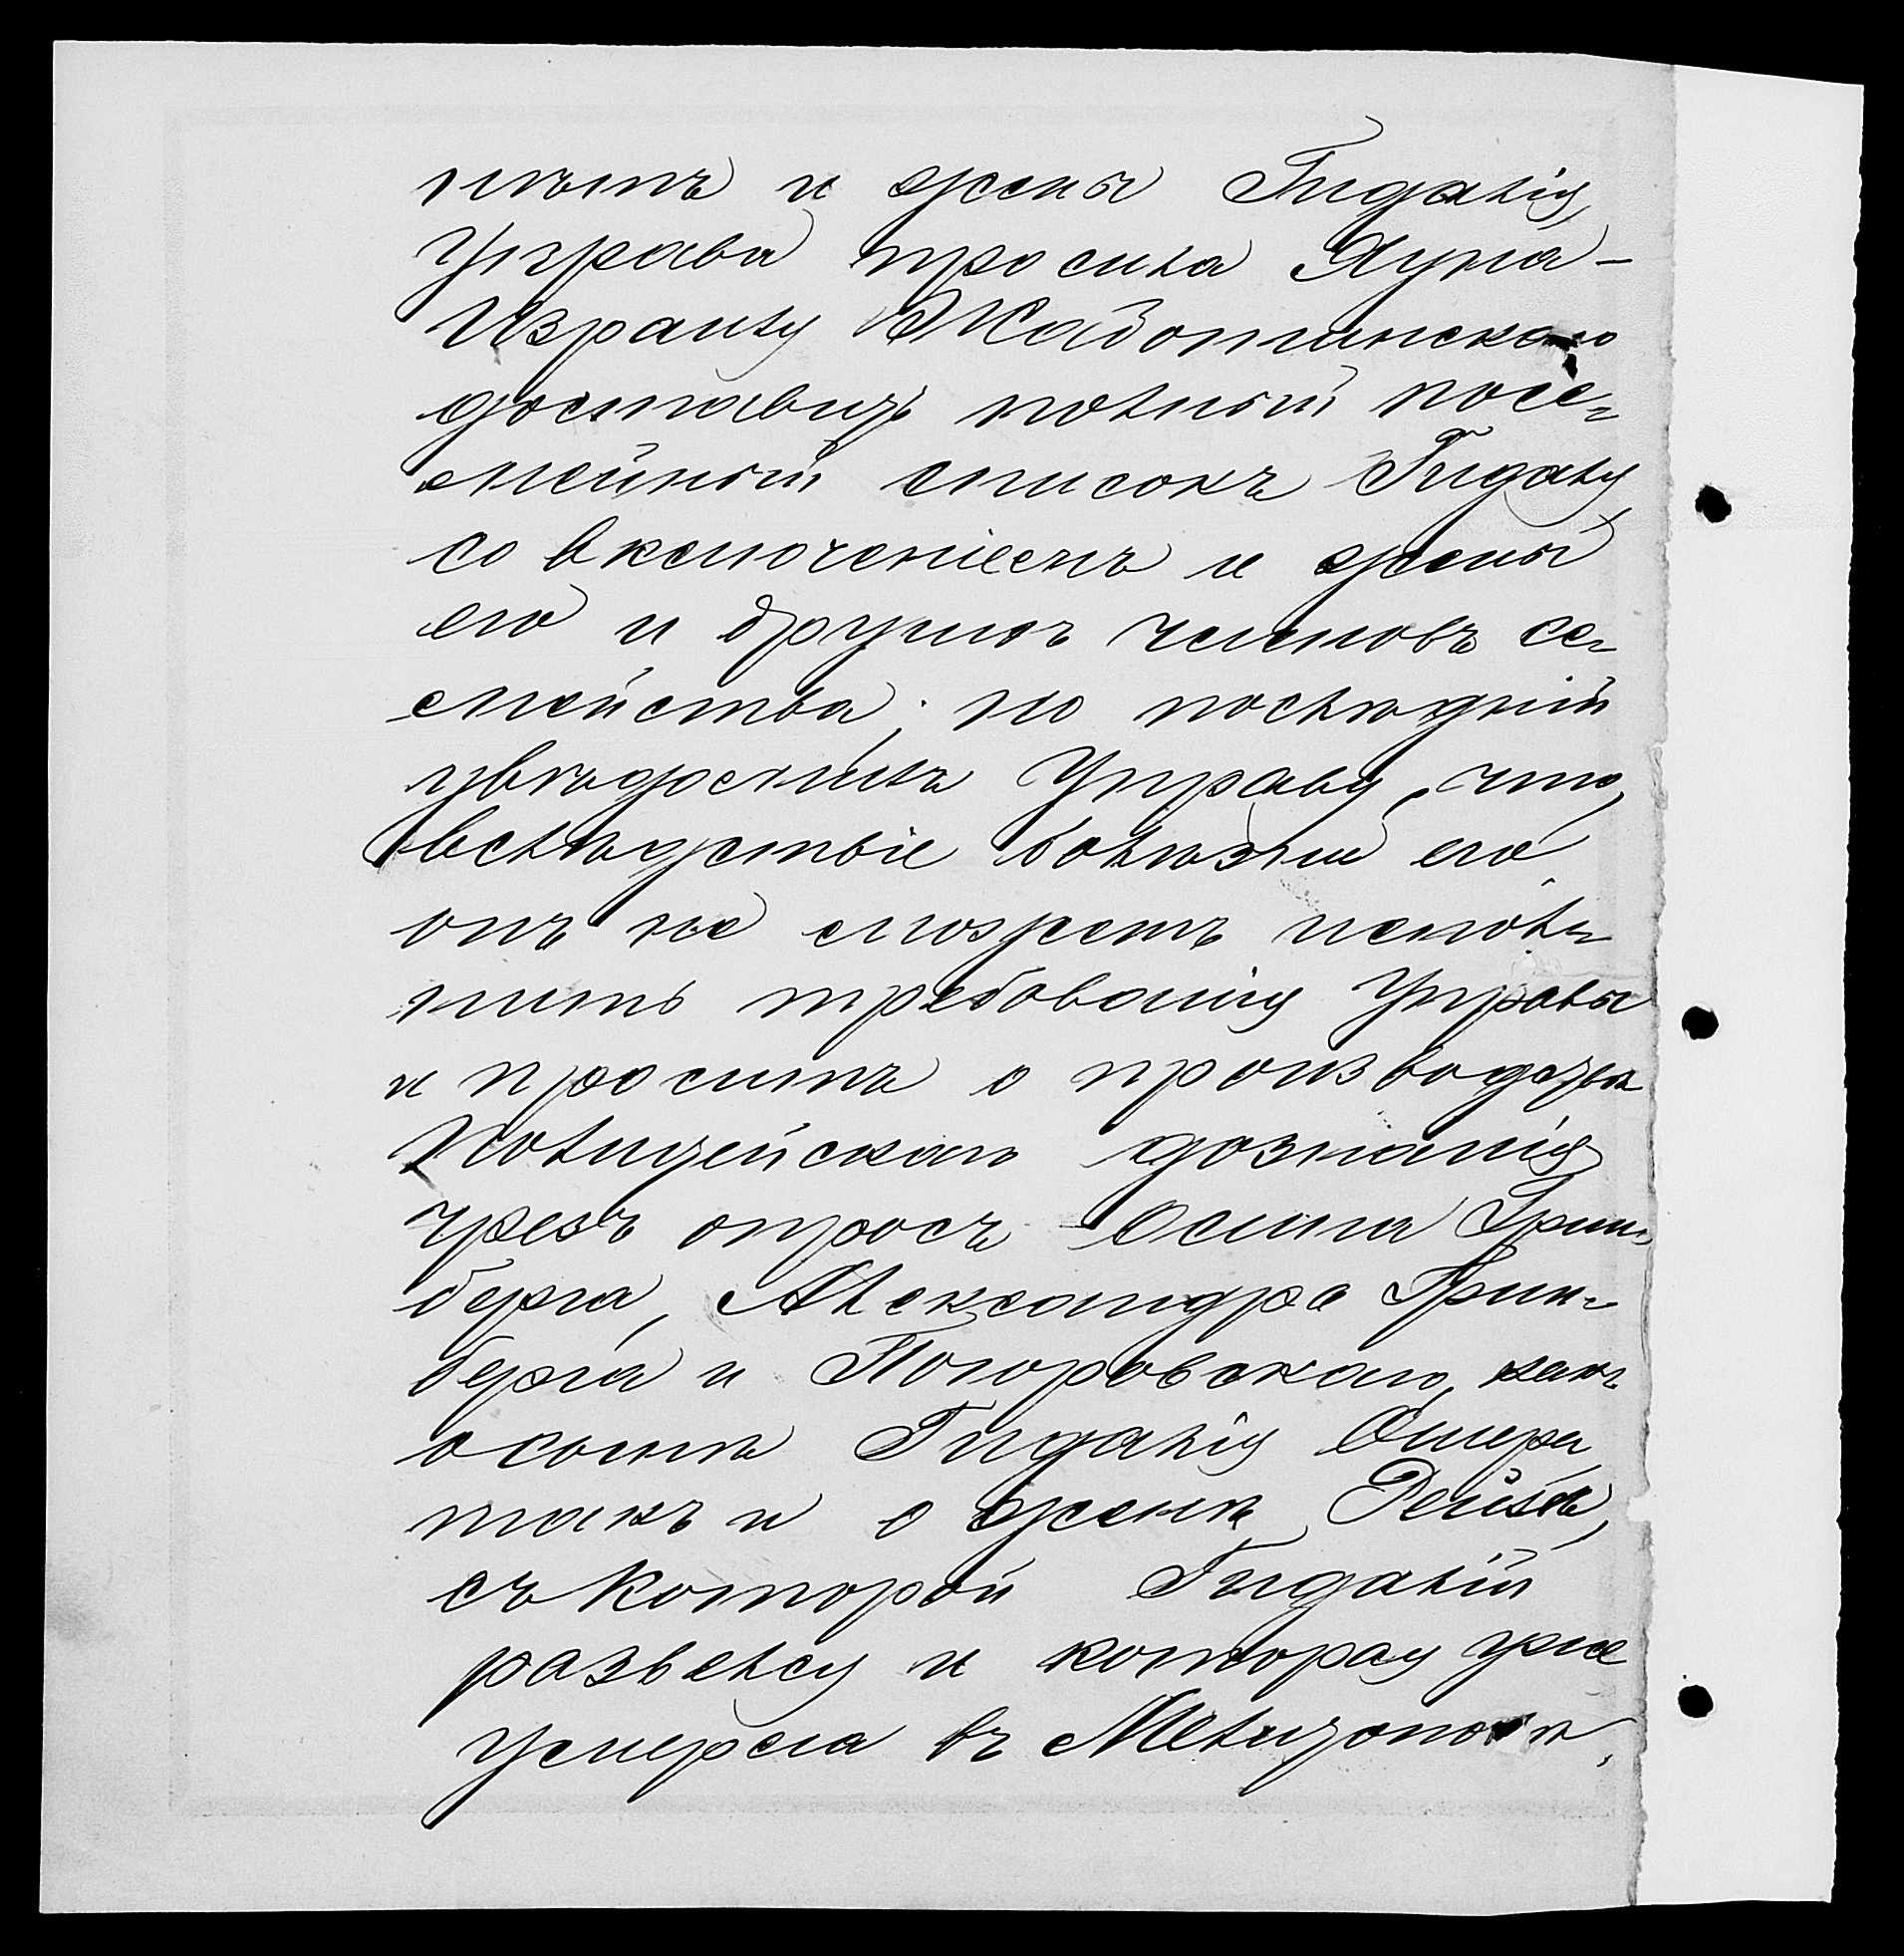 нѣтъ и жены Гидалія,
Управа просила Хуна-
Израиля Жаботинскаго
доставить полный посе-
мейный списокъ Гидаля
со включеніемъ и жены
его и другихъ членовъ се-
мейства; но послѣдній
увѣдомилъ Управу, что,
вслѣдствіе болѣзни его,
онъ не можетъ испол-
нить требованія Управы
и проситъ о производствѣ
Полицейскаго дознанія
чрезъ опросъ Осипа Грин-
берга, Александра Грин-
берга и Погоровскаго, какъ
о самъ Гидалія Ошера
такъ и о женѣ Рейзѣ,
съ которой Гидалій
развелся и которая уже
умерла въ Мелитополѣ.